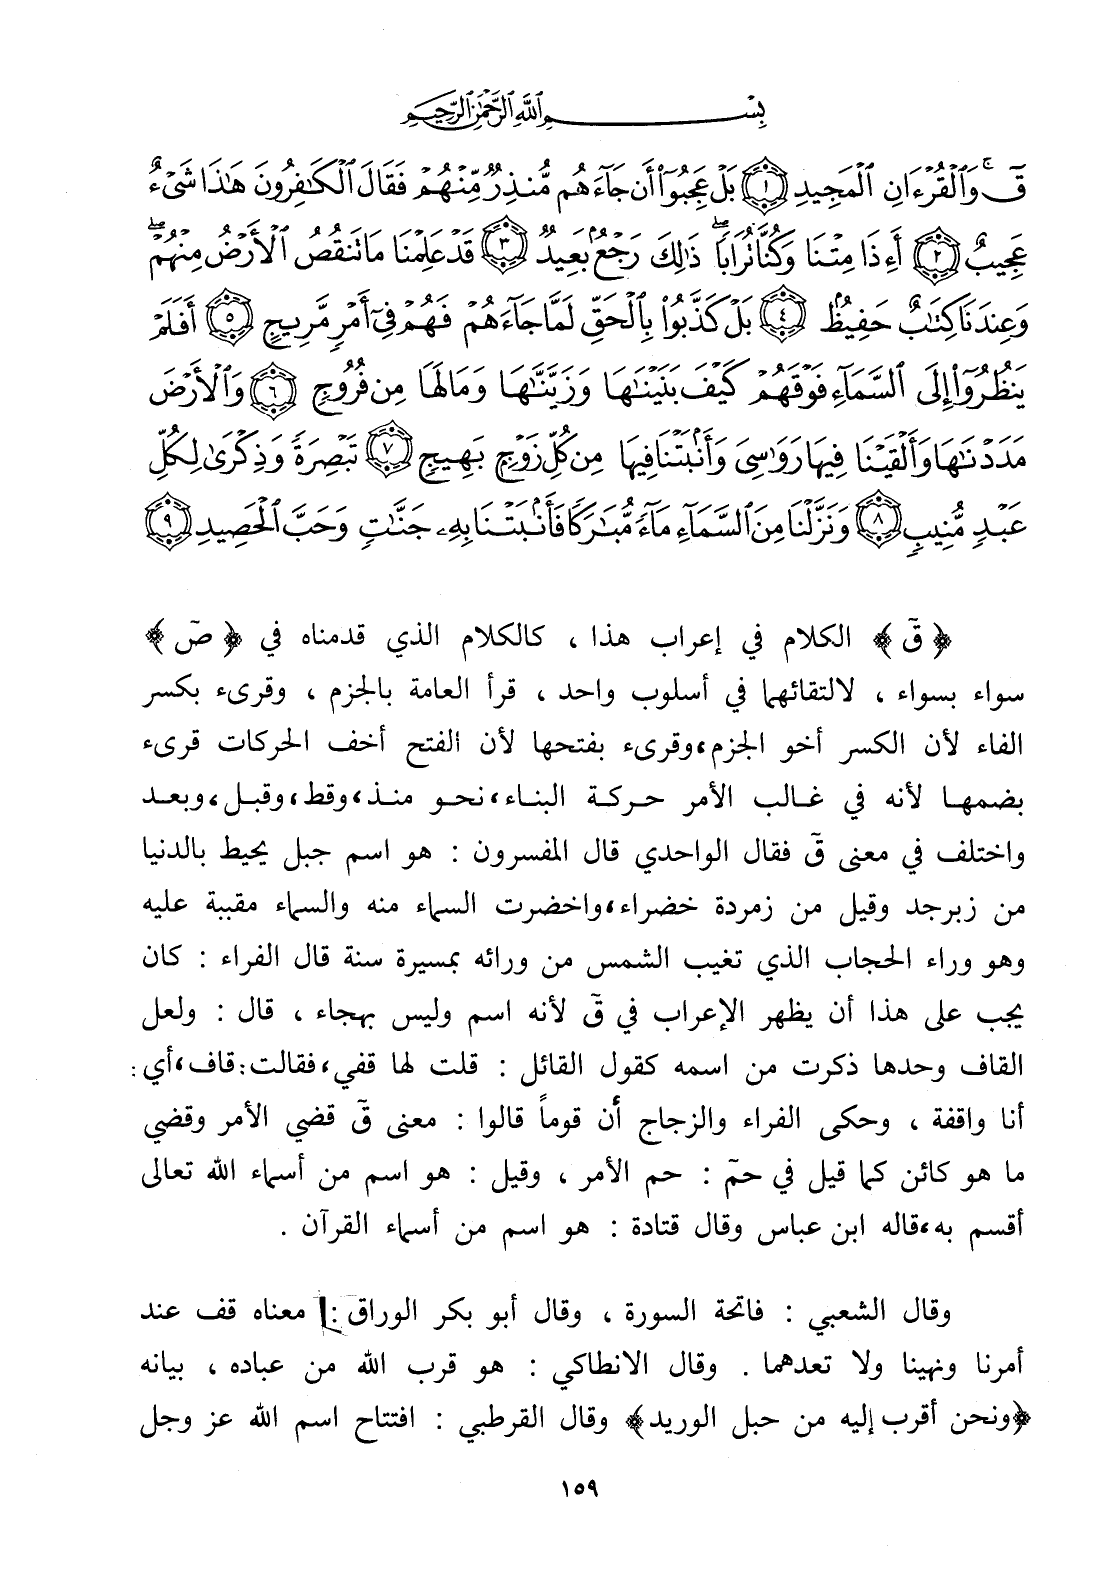 بِسْــــــــمِ ٱللَّهِ ٱلرَّحْمَٰنِ ٱلرَّحِيمِ
قٓۚ وَٱلْقُرْءَانِ ٱلْمَجِيدِ ١ بَلْ عَجِبُوٓا۟ أَن جَآءَهُم مُّنذِرٌ مِّنْهُمْ فَقَالَ ٱلْكَٰفِرُونَ هَٰذَا شَىْءٌ
عَجِيبٌ ٢ أَءِذَا مِتْنَا وَكُنَّا تُرَابًاۖ ذَٰلِكَ رَجْعٌۢ بَعِيدٌ ٣ قَدْ عَلِمْنَا مَا تَنقُصُ ٱلْأَرْضُ مِنْهُمْۖ
وَعِندَنَا كِتَٰبٌ حَفِيظٌۢ ٤ بَلْ كَذَّبُوا۟ بِٱلْحَقِّ لَمَّا جَآءَهُمْ فَهُمْ فِىٓ أَمْرٍ مَّرِيجٍ ٥ أَفَلَمْ
يَنظُرُوٓا۟ إِلَى ٱلسَّمَآءِ فَوْقَهُمْ كَيْفَ بَنَيْنَٰهَا وَزَيَّنَّٰهَا وَمَا لَهَا مِن فُرُوجٍ ٦ وَٱلْأَرْضَ
مَدَدْنَٰهَا وَأَلْقَيْنَا فِيهَا رَوَٰسِىَ وَأَنۢبَتْنَا فِيهَا مِن كُلِّ زَوْجٍۭ بَهِيجٍ ٧ تَبْصِرَةً وَذِكْرَىٰ لِكُلِّ
عَبْدٍ مُّنِيبٍ ٨ وَنَزَّلْنَا مِنَ ٱلسَّمَآءِ مَآءً مُّبَٰرَكًا فَأَنۢبَتْنَا بِهِۦ جَنَّٰتٍ وَحَبَّ ٱلْحَصِيدِ ٩
﴿قٓ﴾ الكلام في إعراب هذا ، كالكلام الذي قدمناه في ﴿صٓ﴾
سواء بسواء ، لالتقائهما في أسلوب واحد ، قرأ العامة بالجزم ، وقرىء بكسر
الفاء لأن الكسر أخو الجزم، وقرىء بفتحها لأن الفتح أخف الحركات قرىء
بضمها لأنه في غالب الأمر حركة البناء، نحو منذ، وقط، وقبل، وبعد
واختلف في معنى قٓ فقال الواحدي قال المفسرون : هو اسم جبل يحيط بالدنيا
من زبرجد وقيل من زمردة خضراء، واخضرت السماء منه والسماء مقببة عليه
وهو وراء الحجاب الذي تغيب الشمس من ورائه بمسيرة سنة قال الفراء : كان
يجب على هذا أن يظهر الإعراب في قٓ لأنه اسم وليس بهجاء ، قال : ولعل
القاف وحدها ذكرت من اسمه كقول القائل : قلت لها قفي، فقالت: قاف، أي :
أنا واقفة ، وحكى الفراء والزجاج أن قوماً قالوا : معنى قٓ قضي الأمر وقضي
ما هو كائن كما قيل في حمٓ : حم الأمر ، وقيل : هو اسم من أسماء الله تعالى
أقسم به، قاله ابن عباس وقال قتادة : هو اسم من أسماء القرآن .
وقال الشعبي : فاتحة السورة ، وقال أبو بكر الوراق : معناه قف عند
أمرنا ونهينا ولا تعدهما . وقال الانطاكي : هو قرب الله من عباده ، بيانه
﴿ونحن أقرب إليه من حبل الوريد﴾ وقال القرطبي : افتتاح اسم الله عز وجل
١٥٩